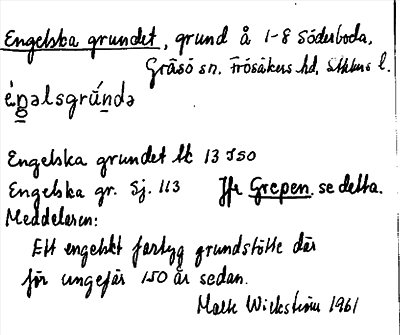 Engelska grundet, grund å 1-8 Söderboda,
Gräsö sn. Frösåkers hd, Sthlms l.
éŋəlsgrúndə
Engelska grundet lk 13 J50
Engelska gr. Sj. 113 Jfr Grepen, se detta.
Meddelaren:
Ett engelskt fartyg grundstötte där
för ungefär 150 år sedan.
Wickström 1961